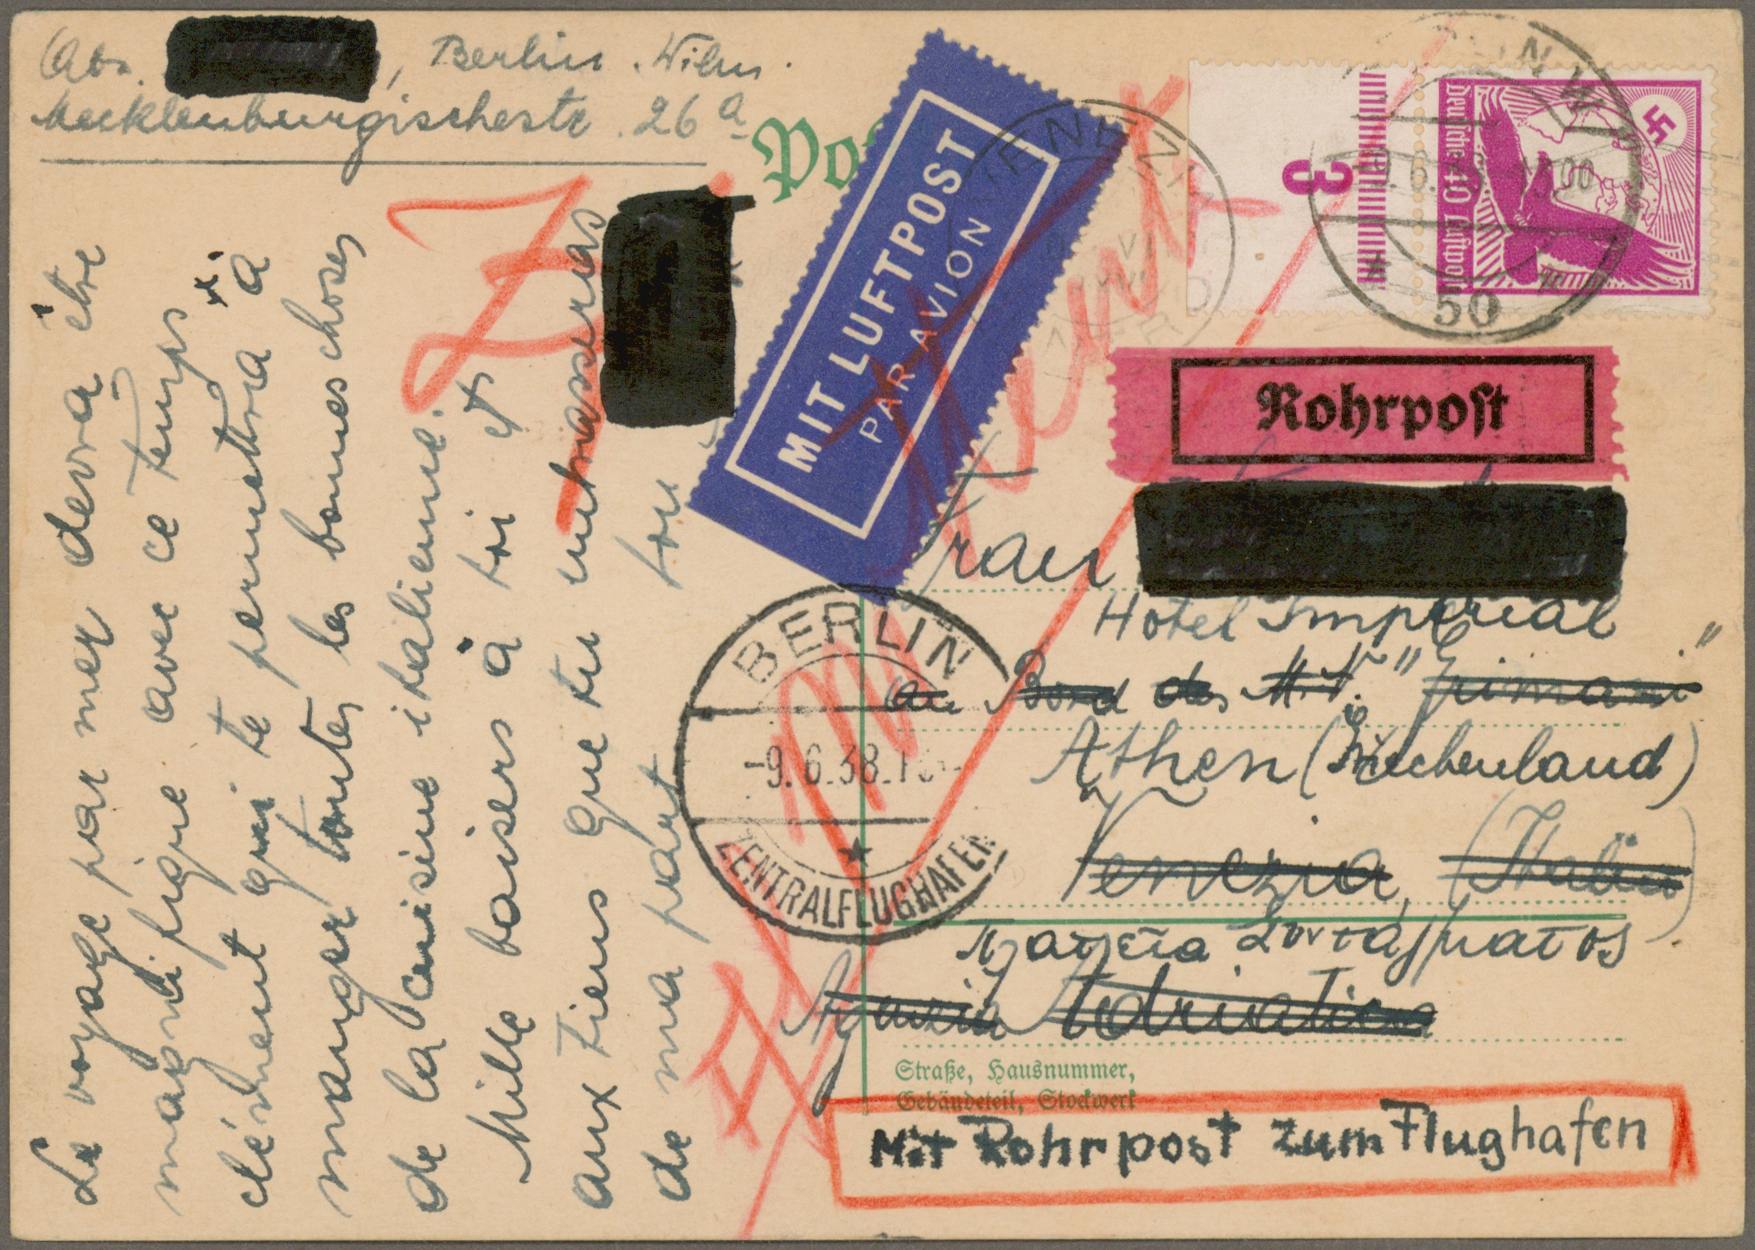 Abs. , Berlin. Wilm.
Mecklenburgischestr. 26 a
Po
MIT LUFTPOST
PAR AVION
VENEZIA
3
Deutsche 40 Luftpost
50
Rohrpost
Frau
Hotel Imperial
an Bord des M.S. "Grimani"
Athen (Griechenland)
Venezia (Italia)
πλατεῖα Συντάγματος
Agenzia Adriatica
Straße, Hausnummer,
Gebäudeteil, Stockwerk
Mit Rohrpost zum Flughafen
BERLIN
-9.6.38.1
ZENTRALFLUGHAFEN
Le voyage par mer devra être
magnifique avec ce temps
clément qui te permettra à
manger toutes les bonnes choses
de la cuisine italienne.
Mille baisers à toi et
aux tiens que tu embrasseras
de ma part ton